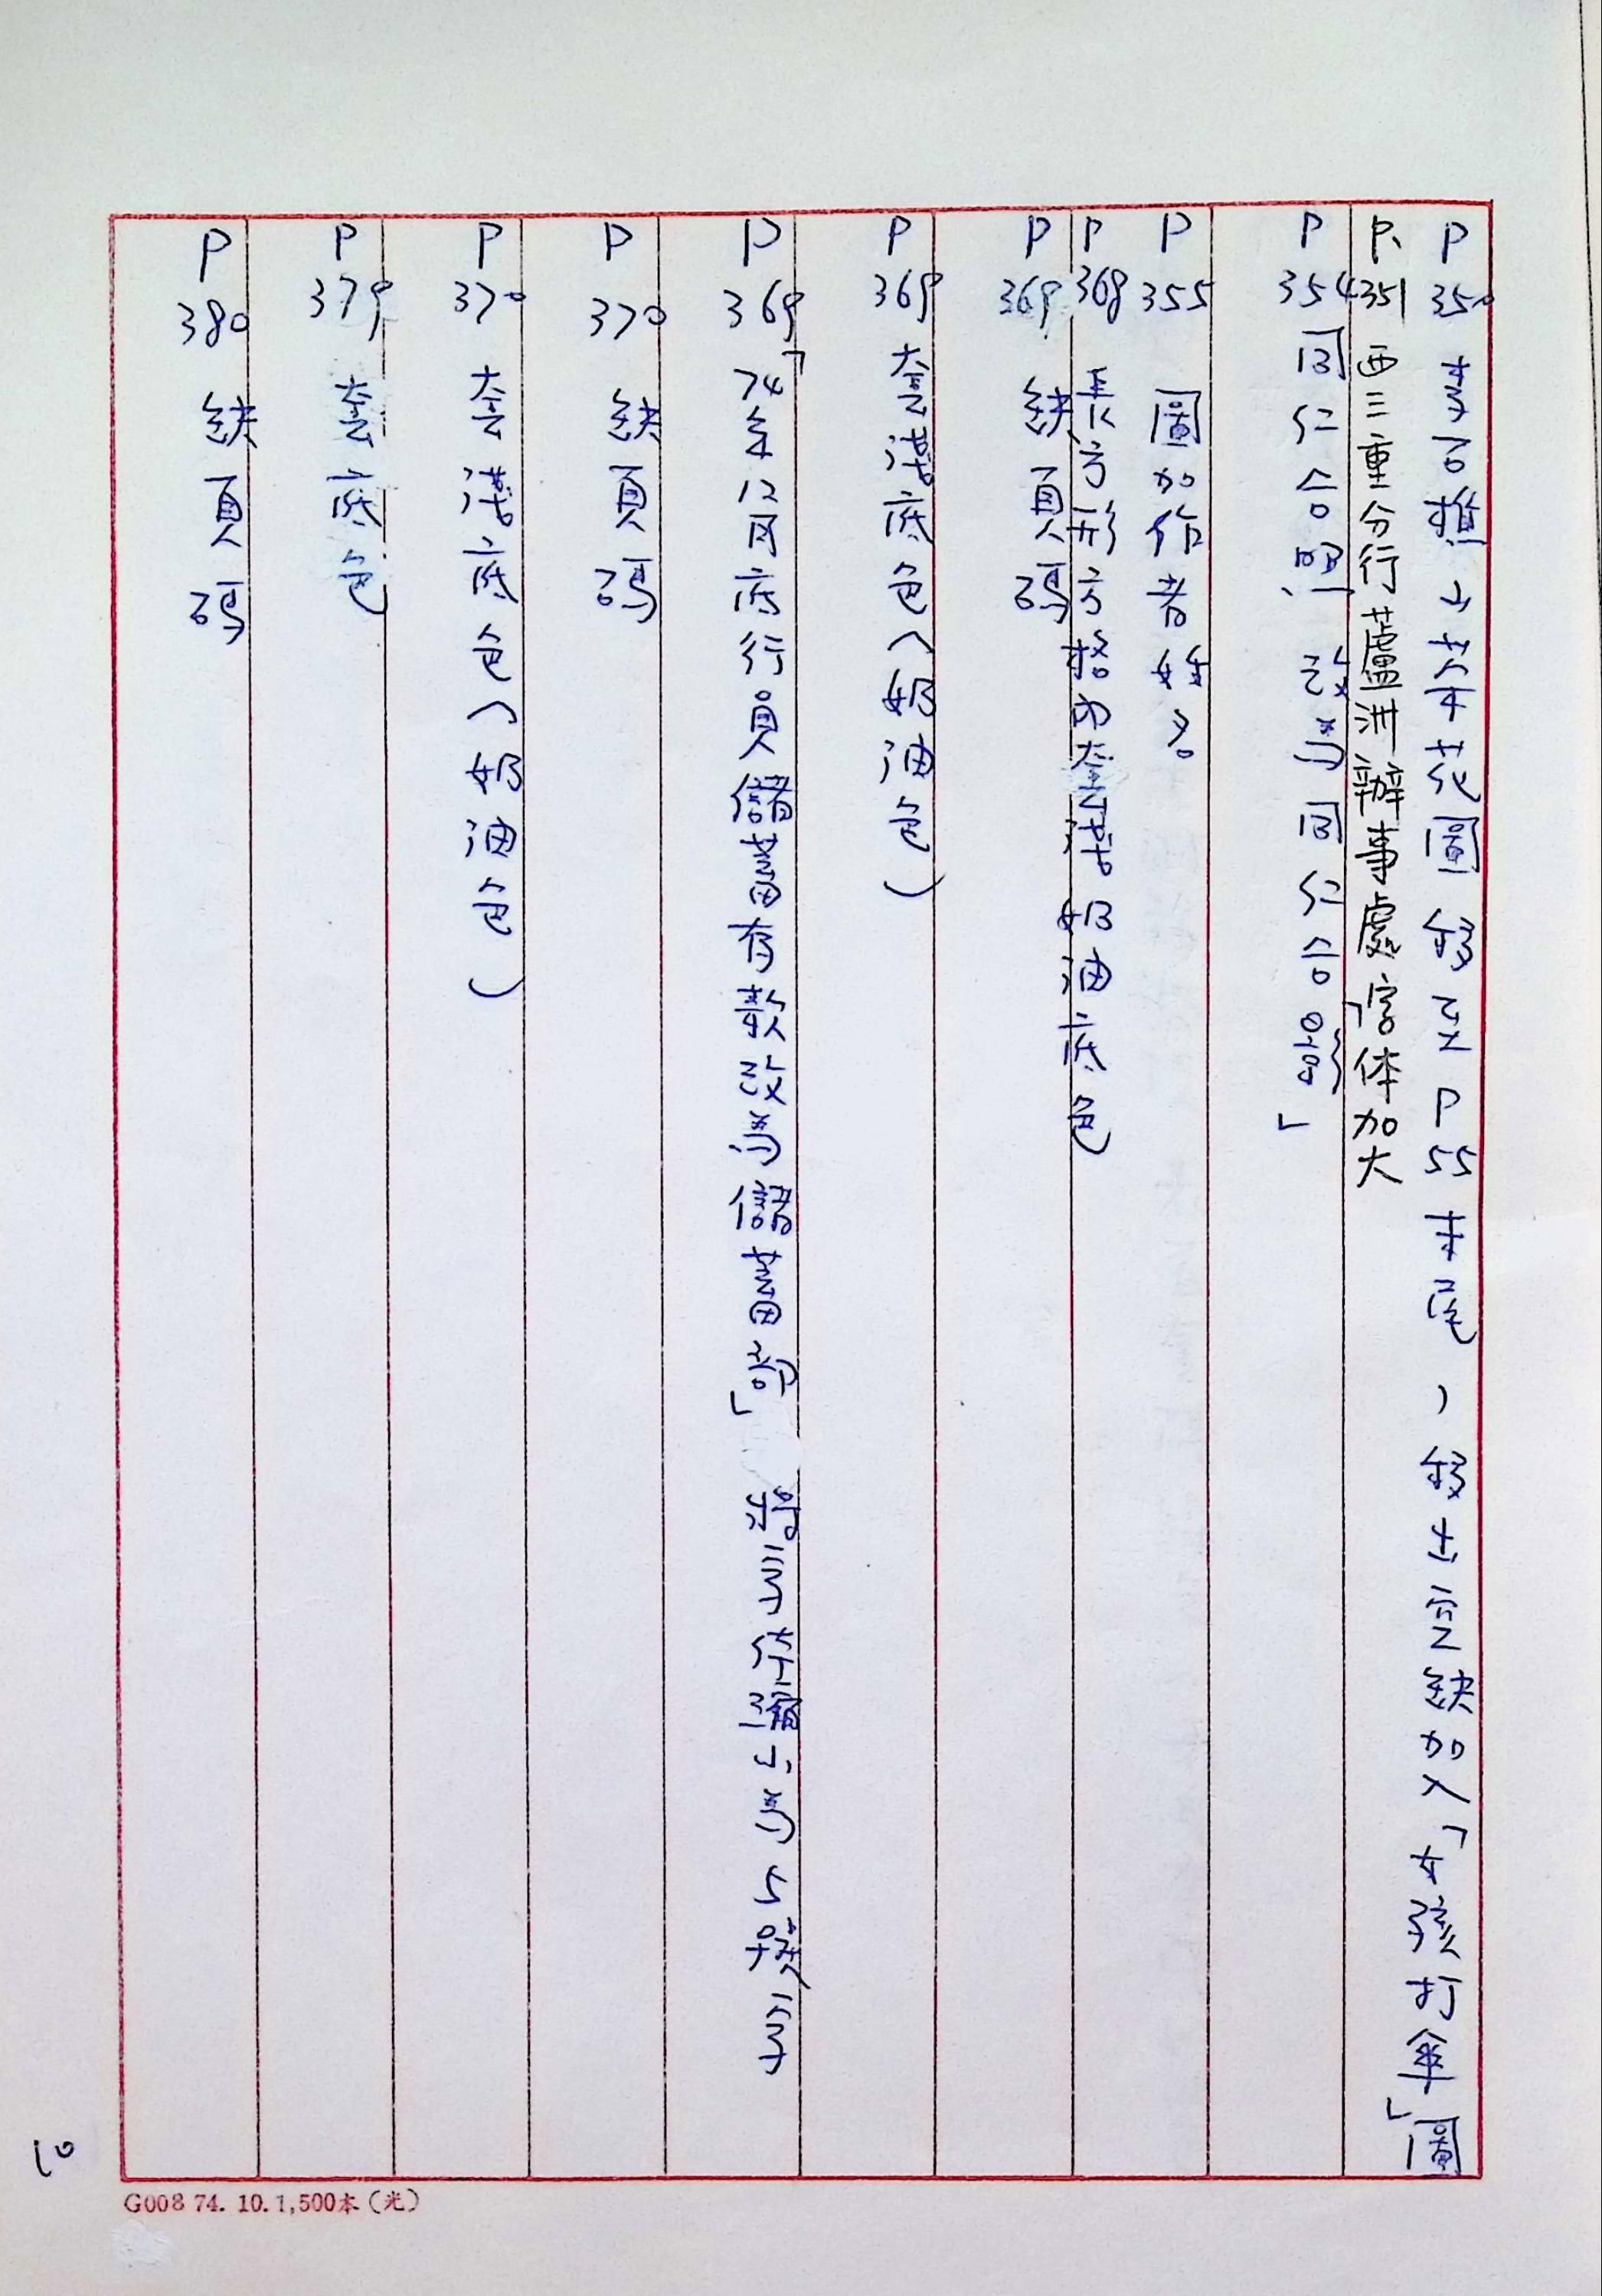 P350 李石樵「山芙蓉花圖移至P55末尾，移出之缺加入「女孩打傘」圖
P.351 西三重分行蘆洲辦事處「字体加大
P354 同仁合照 改為同仁合影」
P355 圖加作者姓名。
P368 長方形方格內套淺奶油底色
P369 缺頁碼
P369 套淺底色(奶油色)
P369 「74年12月底行員儲蓄存款改為儲蓄部」
P370 缺頁碼
P370 套淺底色(奶油色)
P379 套底色
P380 缺頁碼
10
G008 74. 10. 1,500本（光）